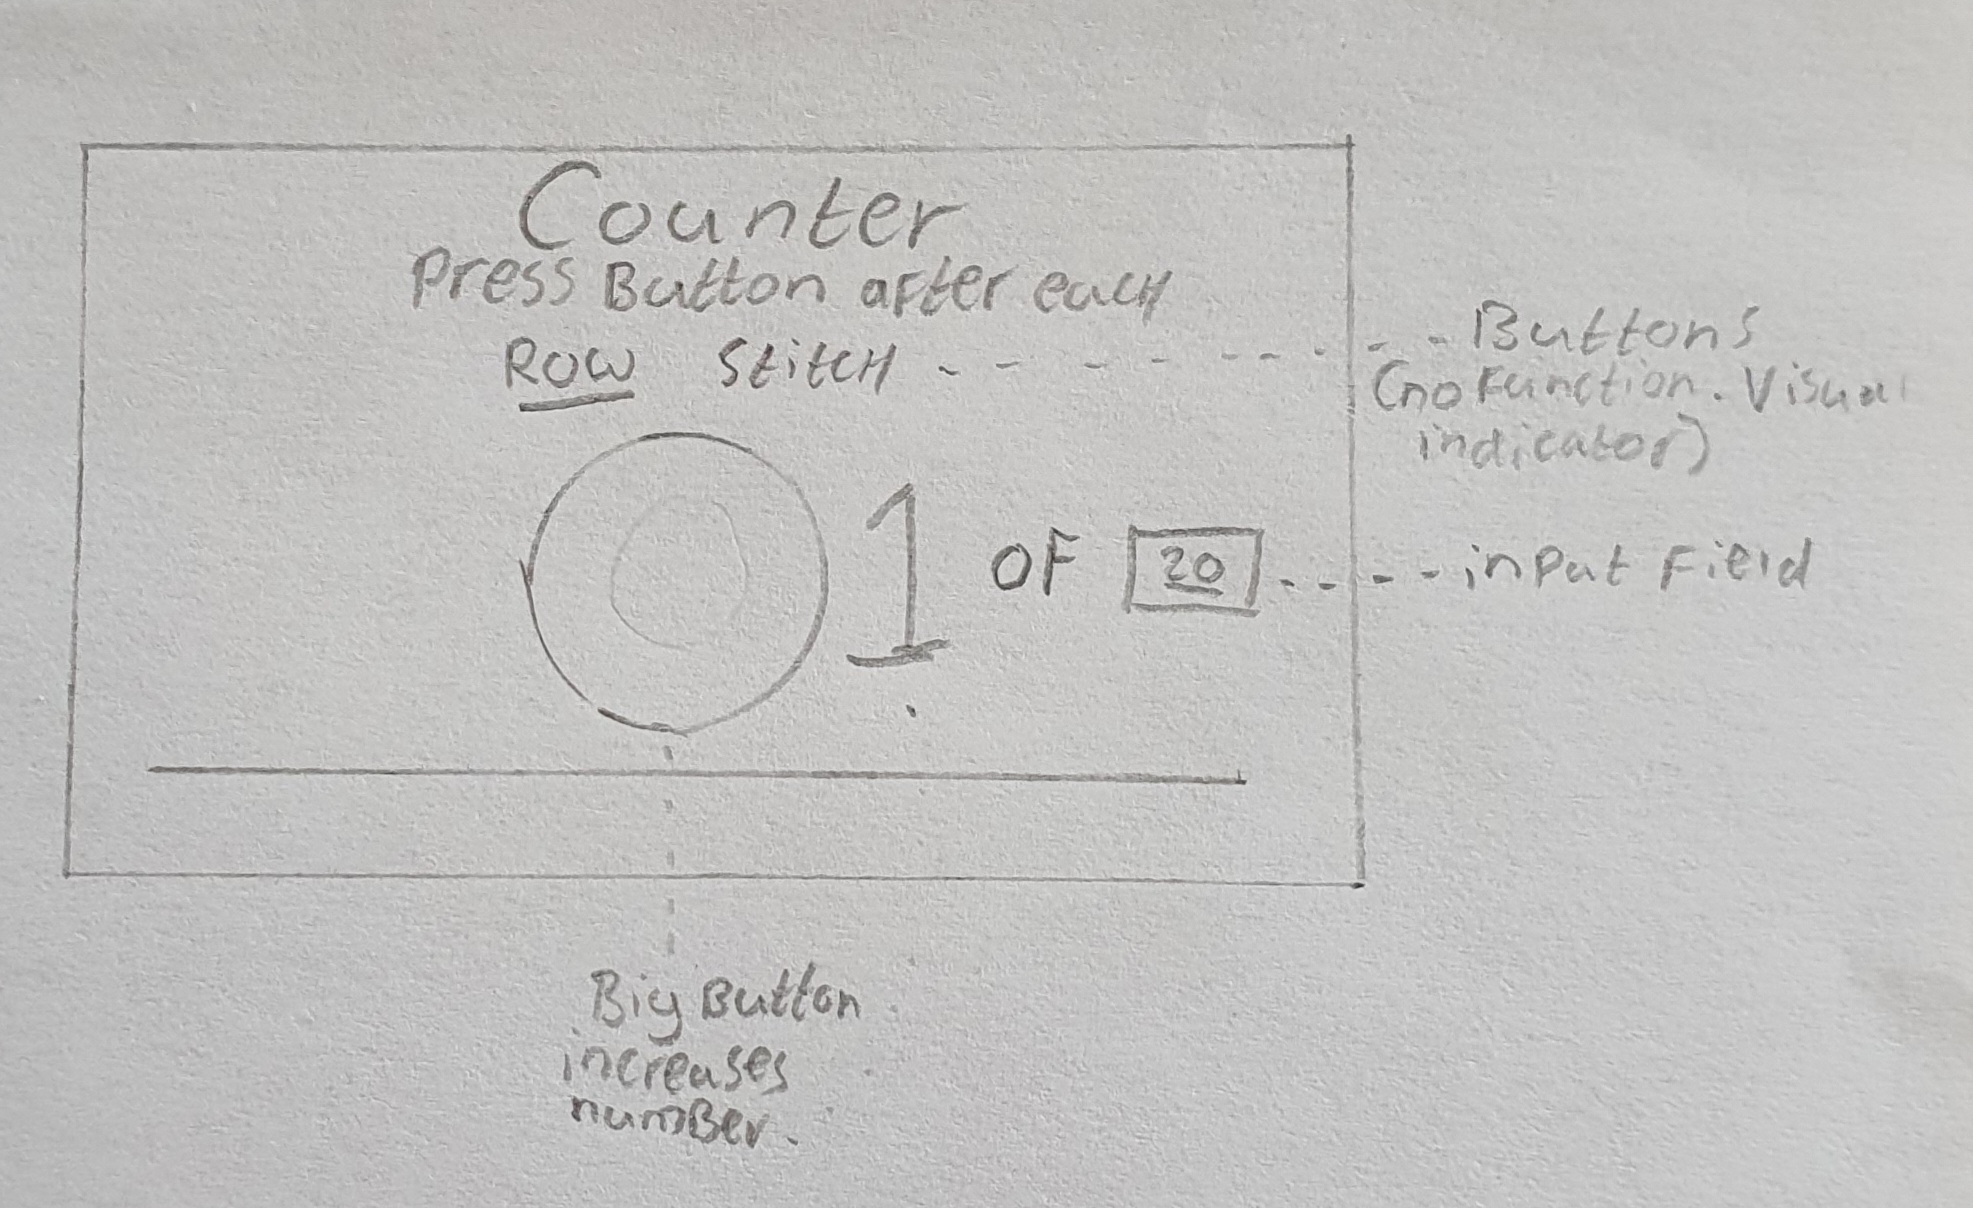 Counter
Press Button after each
Row Stitch
Buttons
(no Function. Visual
indicator)
1 OF 20
input Field
Big Button
increases
number.